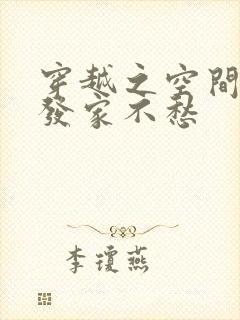 穿越之空間
發家不愁
李瓊燕